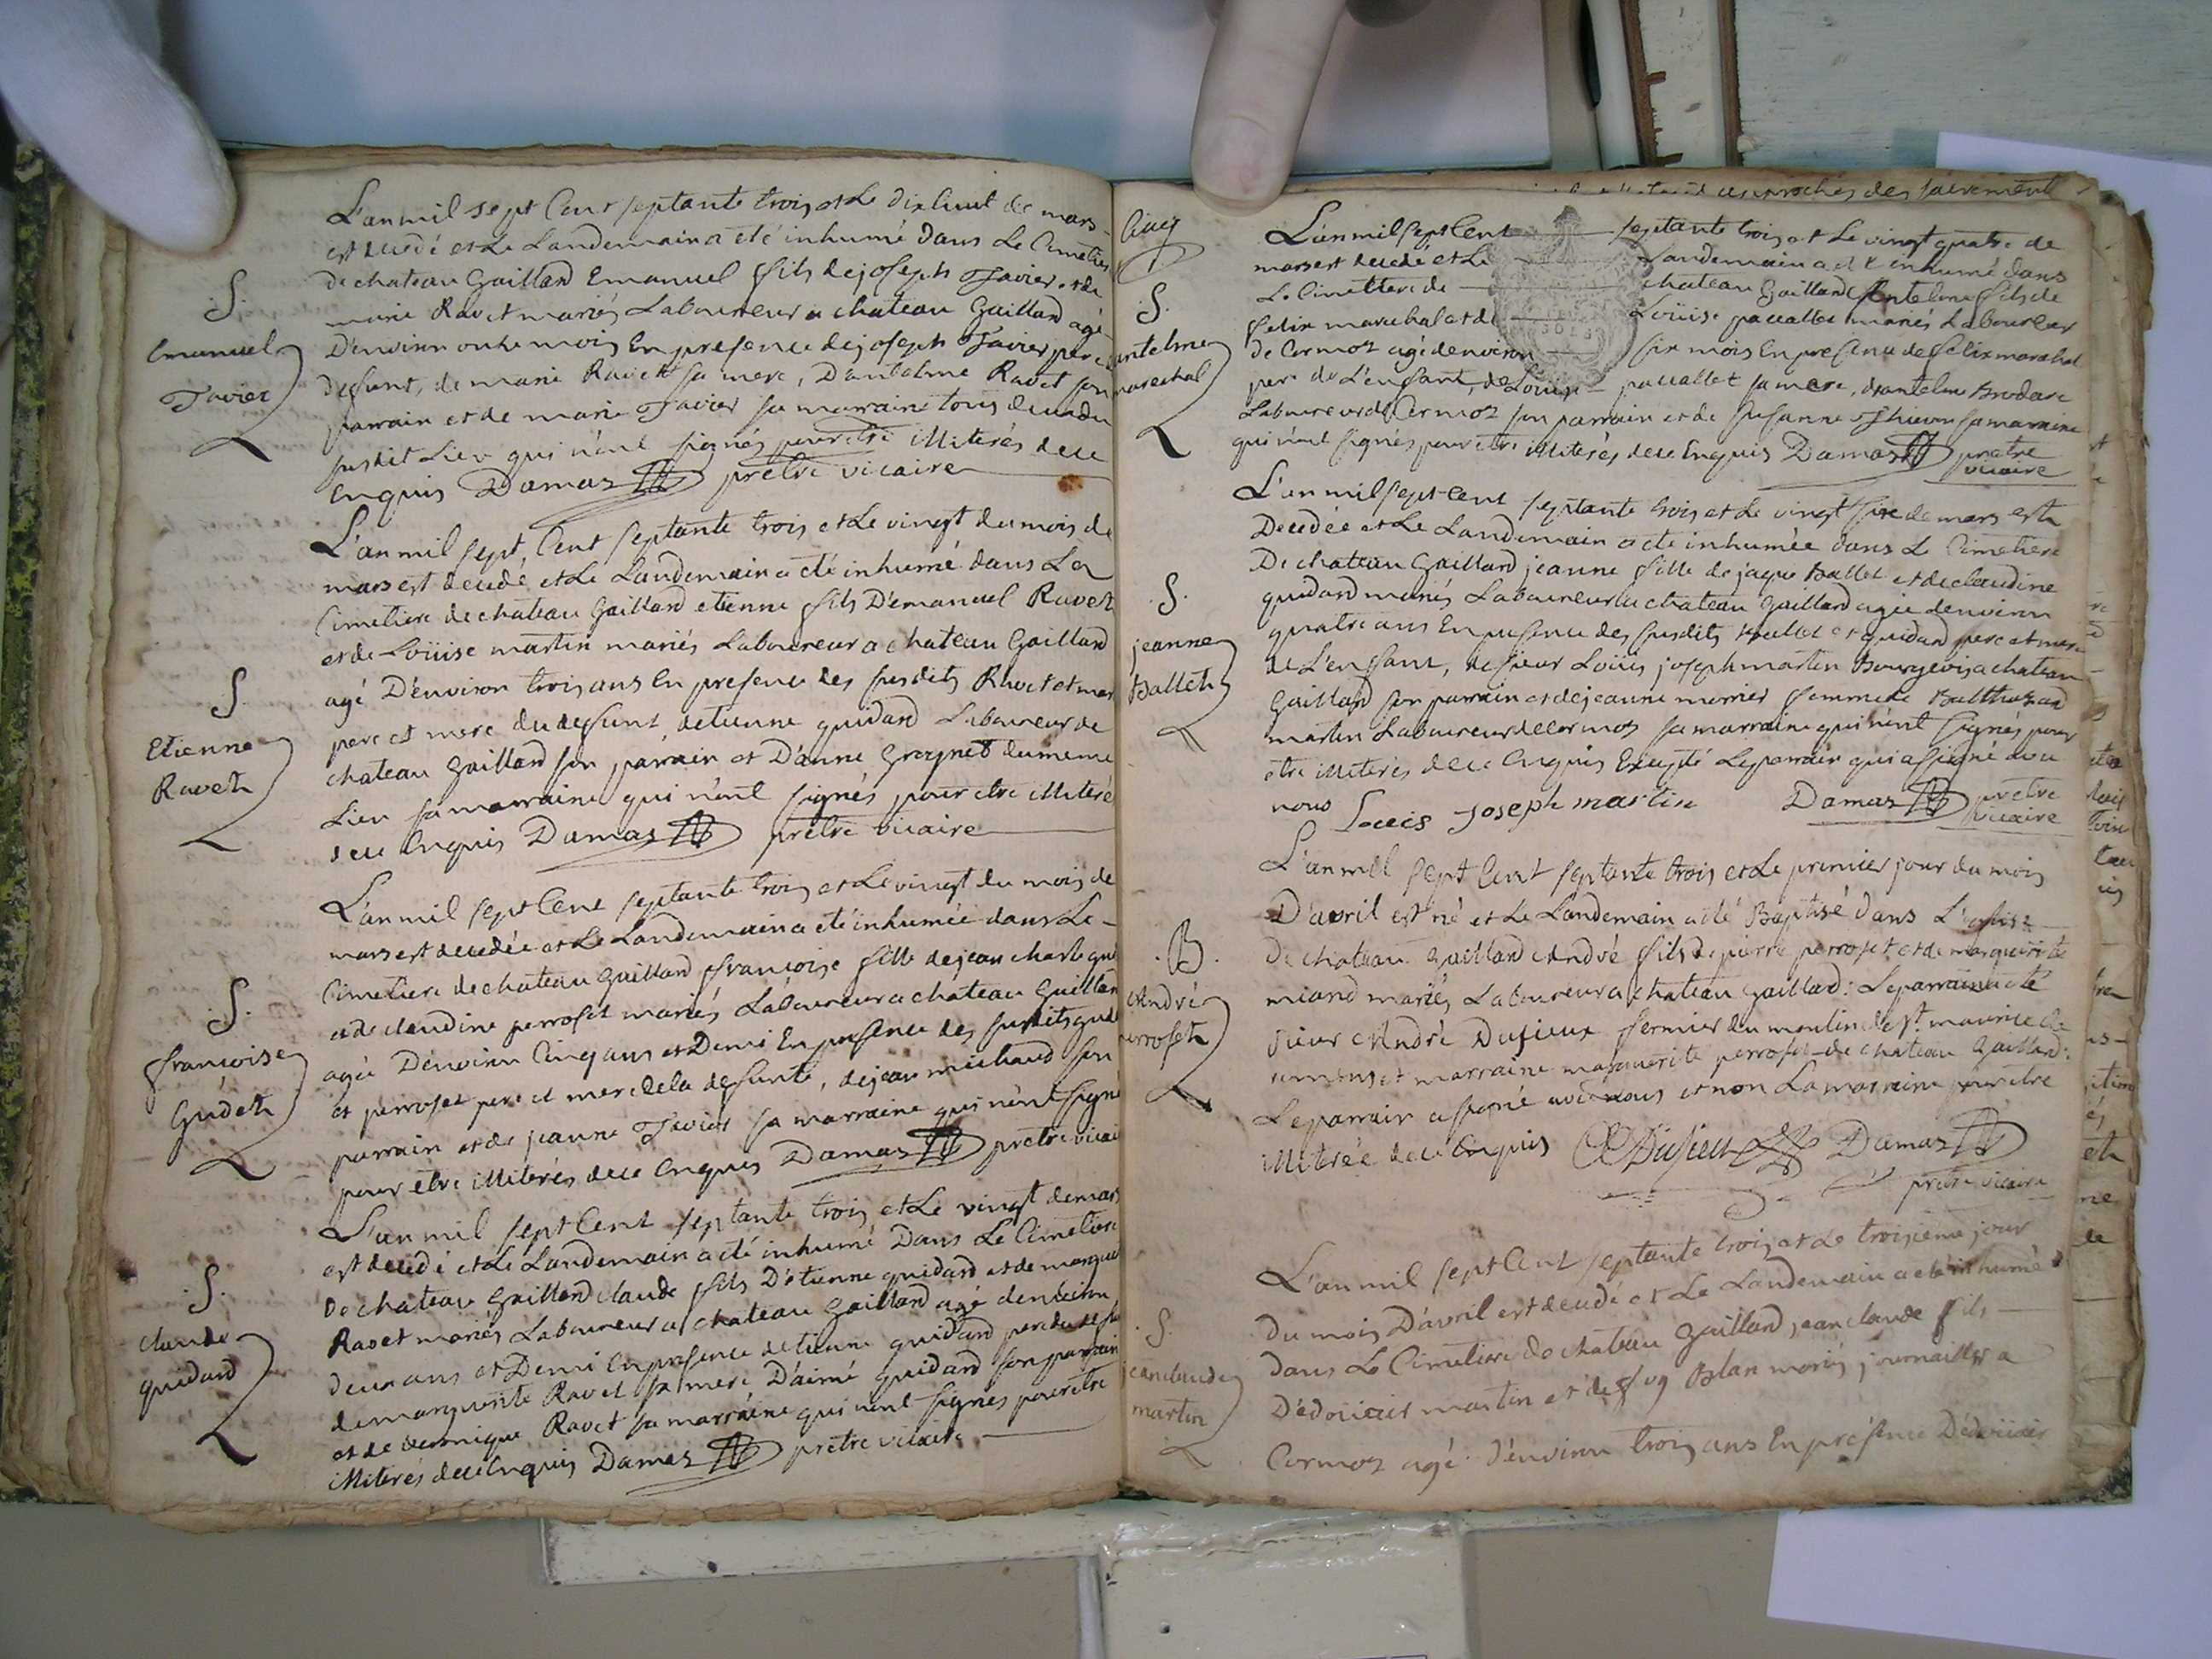 L'an mil sept Cent septante trois et Le dix huit de mars
est decedé et Le Landemain a eté inhumé dans Le Cimetiere
de chateau Gaillard Emanuel fils de joseph Tavier et de
marie Ravet mariés Laboureur a chateau Gaillard agé
D'environ onze mois En presence de joseph Tavier pere du
defunt, de marie Ravet sa mere, D'antelme Ravet son
parrain et de marie Tavier sa marraine tous deux du
susdit Lieu qui n'ont signés pour etre illiterés de ce
Enquis Damas prêtre vicaire
S.
Emanuel
Tavier
L'an mil sept Cent septante trois et Le vingt du mois de
mars est decedé et Le Landemain a eté inhumé dans Le
Cimetiere de chateau Gaillard etienne fils D'emanuel Ravet
et de Loüise martin mariés Laboureur a chateau Gaillard
agé D'environ trois ans En presence des susdits Ravet et mar
pere et mere du defunt, detienne guidard Laboureur de
chateau Gaillard son parrain et D'anne du meme
Lieu sa marraine qui n'ont signés pour etre illiteré
de ce Enquis Damas prêtre vicaire
S.
Etienne
Ravet
L'an mil sept Cent septante trois et Le vingt du mois de
mars est decedée et Le Landemain a eté inhumée dans Le
Cimetiere de chateau Gaillard françoise fille de jean charle
et de claudine perroset mariés Laboureur a chateau Gaillard
agée D'environ Cinq ans et Demi En presence des susdits
et perroset pere et mere de la defunte, de jean michaud son
parrain et de jeanne Tavier sa marraine qui n'ont signé
pour etre illiterés de ce Enquis Damas prêtre vicai
S.
françoise
L'an mil sept Cent septante trois et Le vingt de mars
est decedé et Le Landemain a eté inhumé Dans Le Cimetiere
De chateau Gaillard claude fils D'etienne guidard et de
Ravet mariés Laboureur a chateau Gaillard agé d'environ
deux ans et Demi En presence detienne guidard pere du
de marguerite Ravet sa mere D'aimé guidard son parrain
et de veronique Ravet sa marraine qui n'ont signés pour etre
illiterés de ce Enquis Damas prêtre vicaire
S.
claude
guidard
Cinq
L'an mil sept Cent septante trois et Le vingt quatre de
mars est decedé et Le Landemain a eté inhumé dans
Le Cimettere de chateau Gaillard Antelme fils de
felix marechal et de Loüise mariés Laboureur
de Cormoz agé denviron six mois En presence de felix marechal
pere de L'enfant, de Loüise sa mere, dantelme
Laboureur de Cormoz son parrain et de Susanne sa marraine
qui n'ont signés pour etre illiterés de ce Enquis Damas prêtre
vicaire
S.
antelme
marechal
L'an mil sept Cent septante trois et Le vingt de mars est
Decedée et Le Landemain a eté inhumée dans Le Cimetiere
De chateau Gaillard jeanne fille de jaque Ballet et de claudine
guidard mariés Laboureur a chateau Gaillard agée denviron
quatre ans En presence des susdits Ballet et guidard pere et mere
de L'enfant, de sieur Loüis joseph martin Bourgeois a chateau
Gaillard son parrain et de jeanne femme de Balthazard
martin Laboureur de Cormoz sa marraine qui n'ont signés pour
etre illiterés de ce Enquis Excepté Le parrain qui a signé avec
nous Louis Joseph martin Damas prêtre
vicaire
S.
jeanne
Ballet
L'an mil sept Cent septante trois et Le premier jour du mois
D'avril est né et Le Landemain a eté Baptisé dans L'eglise
De chateau Gaillard André fils de pierre perroset et de marguerite
miand mariés Laboureur a chateau Gaillard: Le parrain a eté
sieur André Dusieux fermier du moulin de St. maurice de
remens et marraine marguerite perroset de chateau Gaillard:
Le parrain a signé avec nous et non La marraine pour etre
illiterée de ce Enquis Dusieu Damas
prêtre vicaire
.B.
André
perroset
L'an mil sept Cent septante trois et Le troisieme jour
du mois D'avril est decedé et Le Landemain a eté inhumé
dans Le Cimetiere de chateau Gaillard, jean claude fils
D'édoüard martin et de Blan mariés journallier a
Cormoz agé d'environ trois ans En présence D'édoüard
S.
jean claude
martin